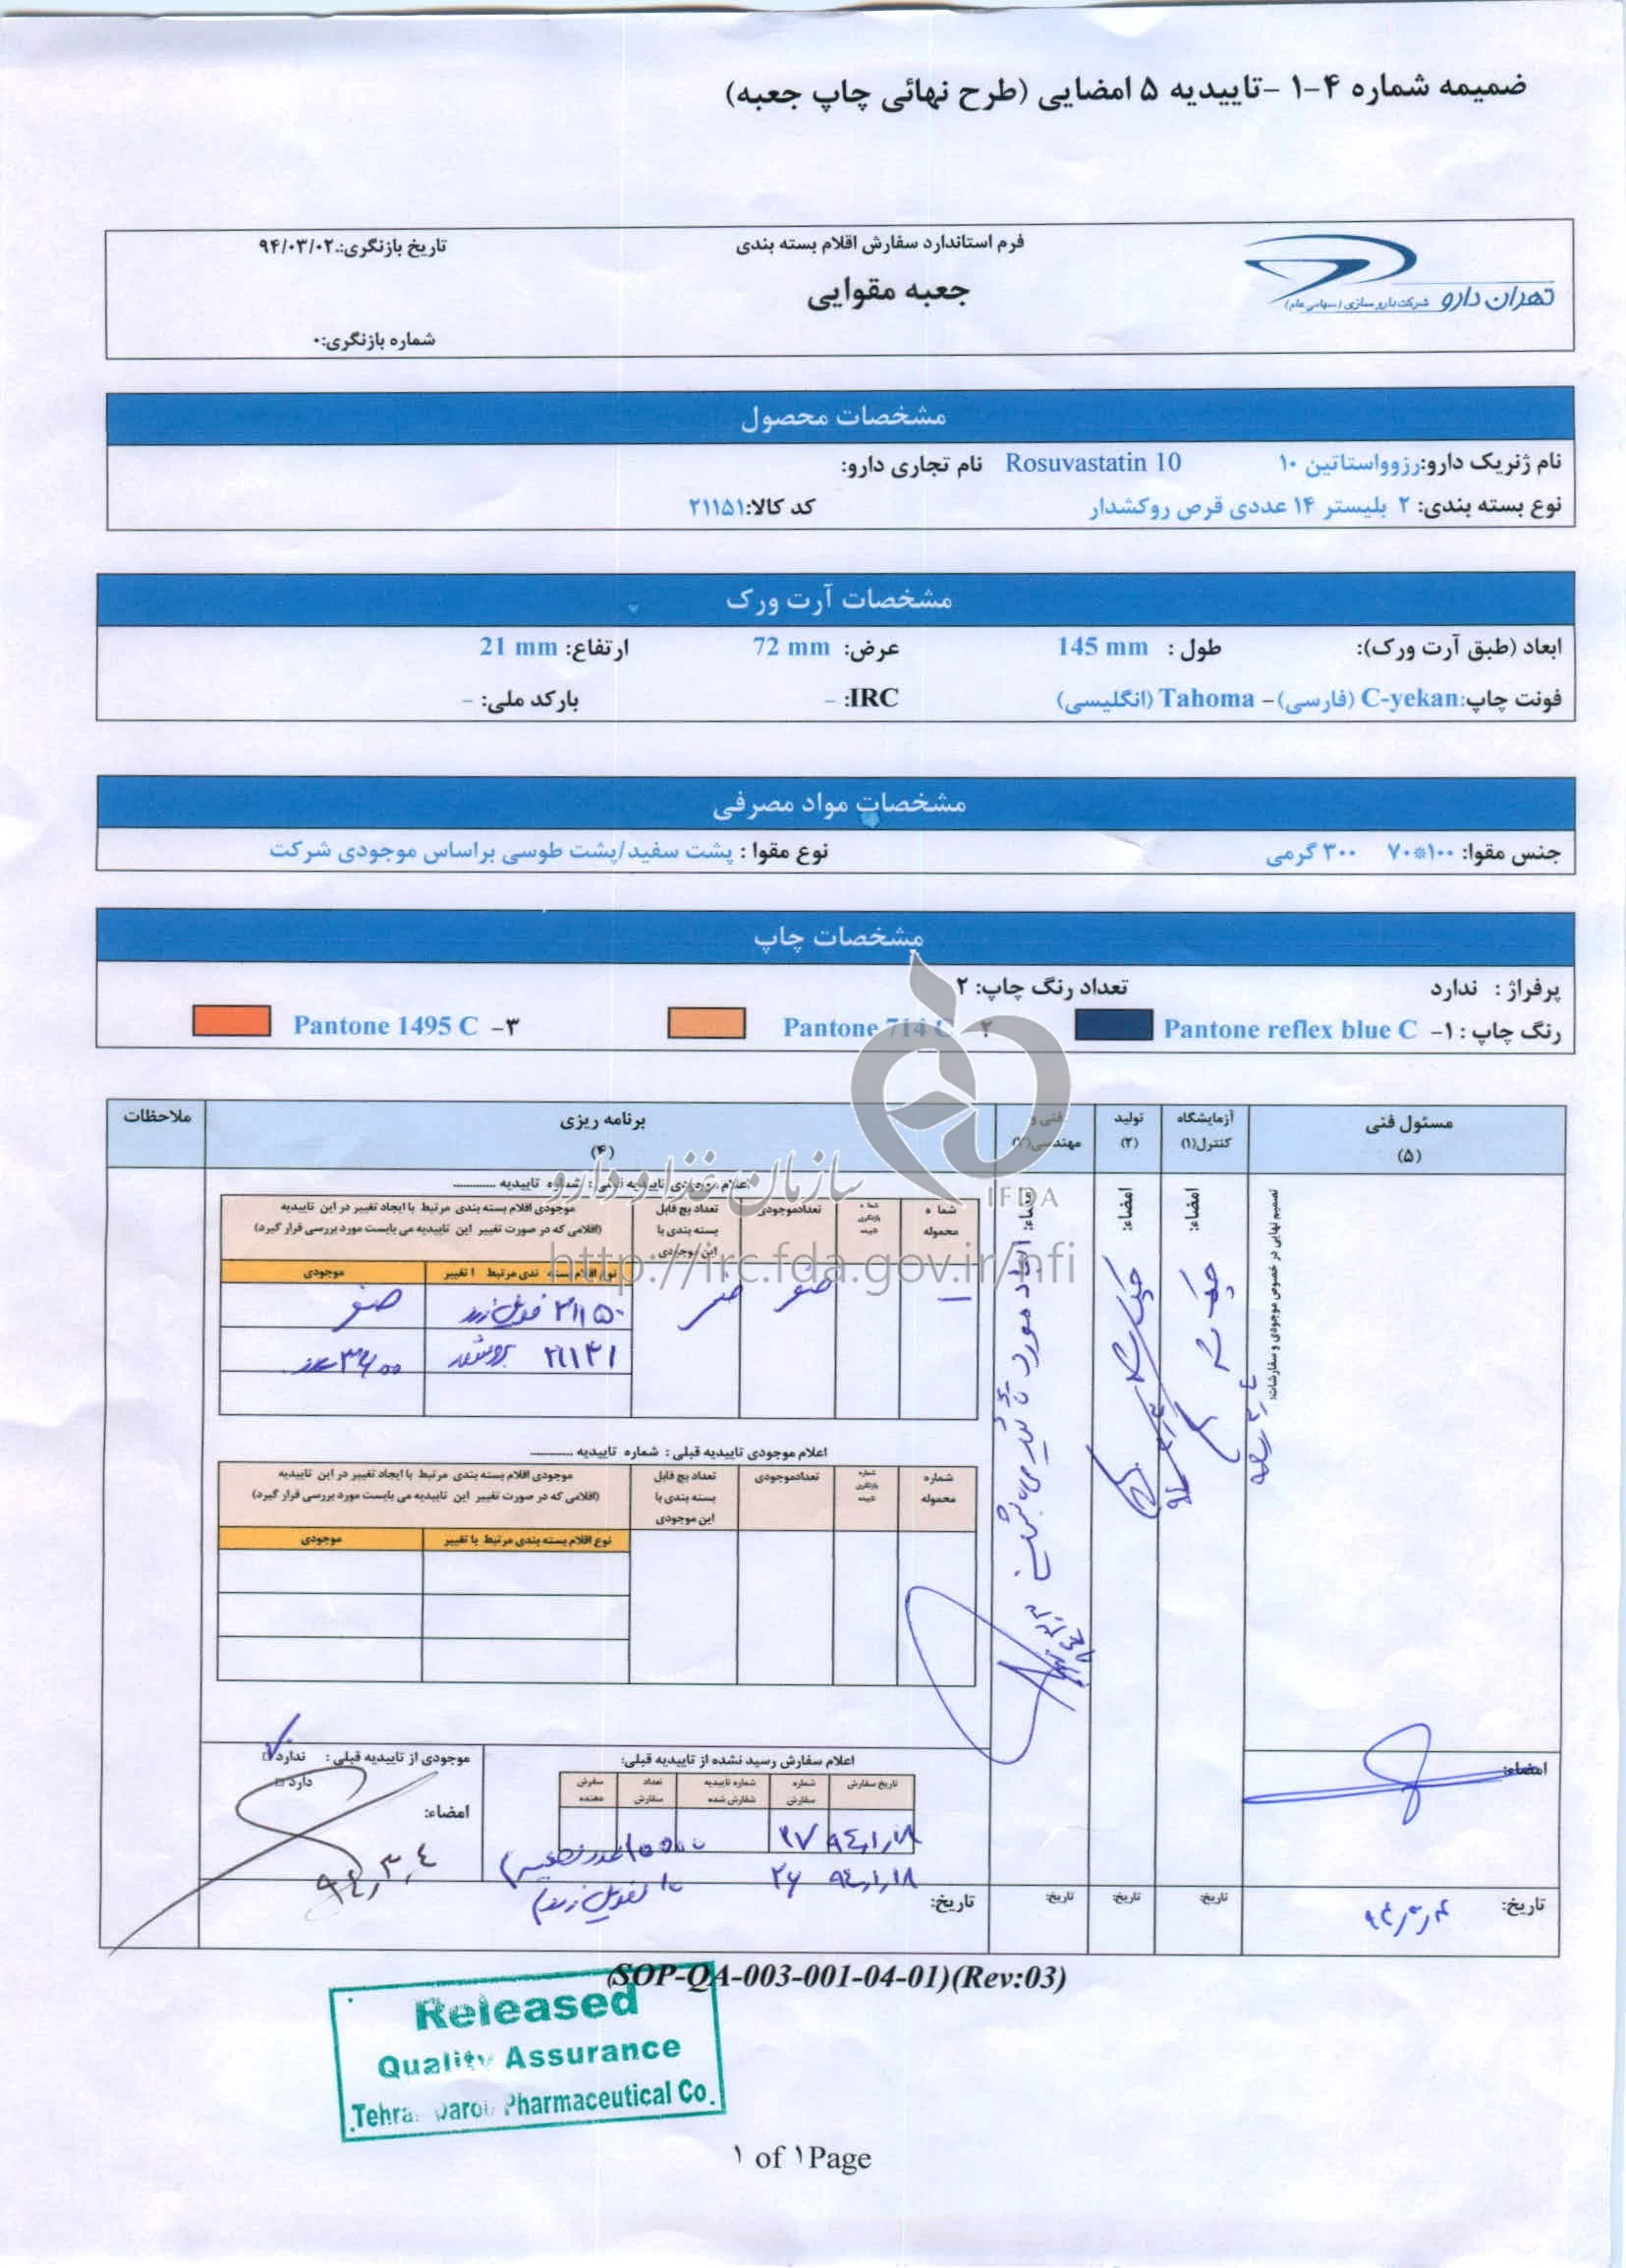 ضمیمه شماره ۴-۱ -تاییدیه ۵ امضایی (طرح نهائی چاپ جعبه)
تهران دارو شرکت دارو سازی (سهامی عام)
فرم استاندارد سفارش اقلام بسته بندی
جعبه مقوایی
تاریخ بازنگری:.۹۴/۰۳/۰۲
شماره بازنگری:۰
مشخصات محصول
نام ژنریک دارو:رزوواستاتین ۱۰ Rosuvastatin 10 نام تجاری دارو:
نوع بسته بندی: ۲ بلیستر ۱۴ عددی قرص روکشدار کد کالا:۲۱۱۵۱
مشخصات آرت ورک
ابعاد (طبق آرت ورک): طول : 145 mm عرض: 72 mm ارتفاع: 21 mm
فونت چاپ:C-yekan (فارسی)- Tahoma (انگلیسی) IRC: - بارکد ملی: -
مشخصات مواد مصرفی
جنس مقوا: ۱۰۰*۷۰ ۳۰۰ گرمی نوع مقوا : پشت سفید/پشت طوسی براساس موجودی شرکت
مشخصات چاپ
پرفراژ : ندارد تعداد رنگ چاپ: ۲
رنگ چاپ : ۱- Pantone reflex blue C ۲- Pantone 714 C ۳- Pantone 1495 C
مسئول فنی (۵) آزمایشگاه کنترل(۱) تولید (۲) فنی و مهندسی(۳) برنامه ریزی (۴) ملاحظات
تصمیم نهایی در خصوص موجودی و سفارشات:
امضاء:
امضاء:
امضاء:
ایراد مورد تأیید می‌باشد
اعلام موجودی تاییدیه قبلی : شماره تاییدیه ............
شماره محموله شماره بازنگری تعدادموجودی تعداد بچ قابل بسته بندی با این موجودی
موجودی اقلام بسته بندی مرتبط با ایجاد تغییر در این تاییدیه
(اقلامی که در صورت تغییر این تاییدیه می بایست مورد بررسی قرار گیرد)
نوع اقلام بسته بندی مرتبط با تغییر موجودی
صفر صفر ۲۱۱۵۰ فویل صفر
۲۱۱۴۱ بروشور ۳۶۰۰ عدد
اعلام موجودی تاییدیه قبلی : شماره تاییدیه ............
شماره محموله شماره بازنگری تعدادموجودی تعداد بچ قابل بسته بندی با این موجودی
موجودی اقلام بسته بندی مرتبط با ایجاد تغییر در این تاییدیه
(اقلامی که در صورت تغییر این تاییدیه می بایست مورد بررسی قرار گیرد)
نوع اقلام بسته بندی مرتبط با تغییر موجودی
امضاء:
اعلام سفارش رسید نشده از تاییدیه قبلی:
تاریخ سفارش شماره سفارش شماره تاییدیه سفارش شده تعداد سفارش سفارش دهنده
موجودی از تاییدیه قبلی : ندارد□
دارد□
امضاء:
۹۴,۳,۴
تاریخ: تاریخ: تاریخ: تاریخ: تاریخ:
(SOP-QA-003-001-04-01)(Rev:03)
Released
Quality Assurance
Tehran Darou Pharmaceutical Co.
۱ of ۱Page
سازمان غذا و دارو
IFDA
http://irc.fda.gov.ir/nfi